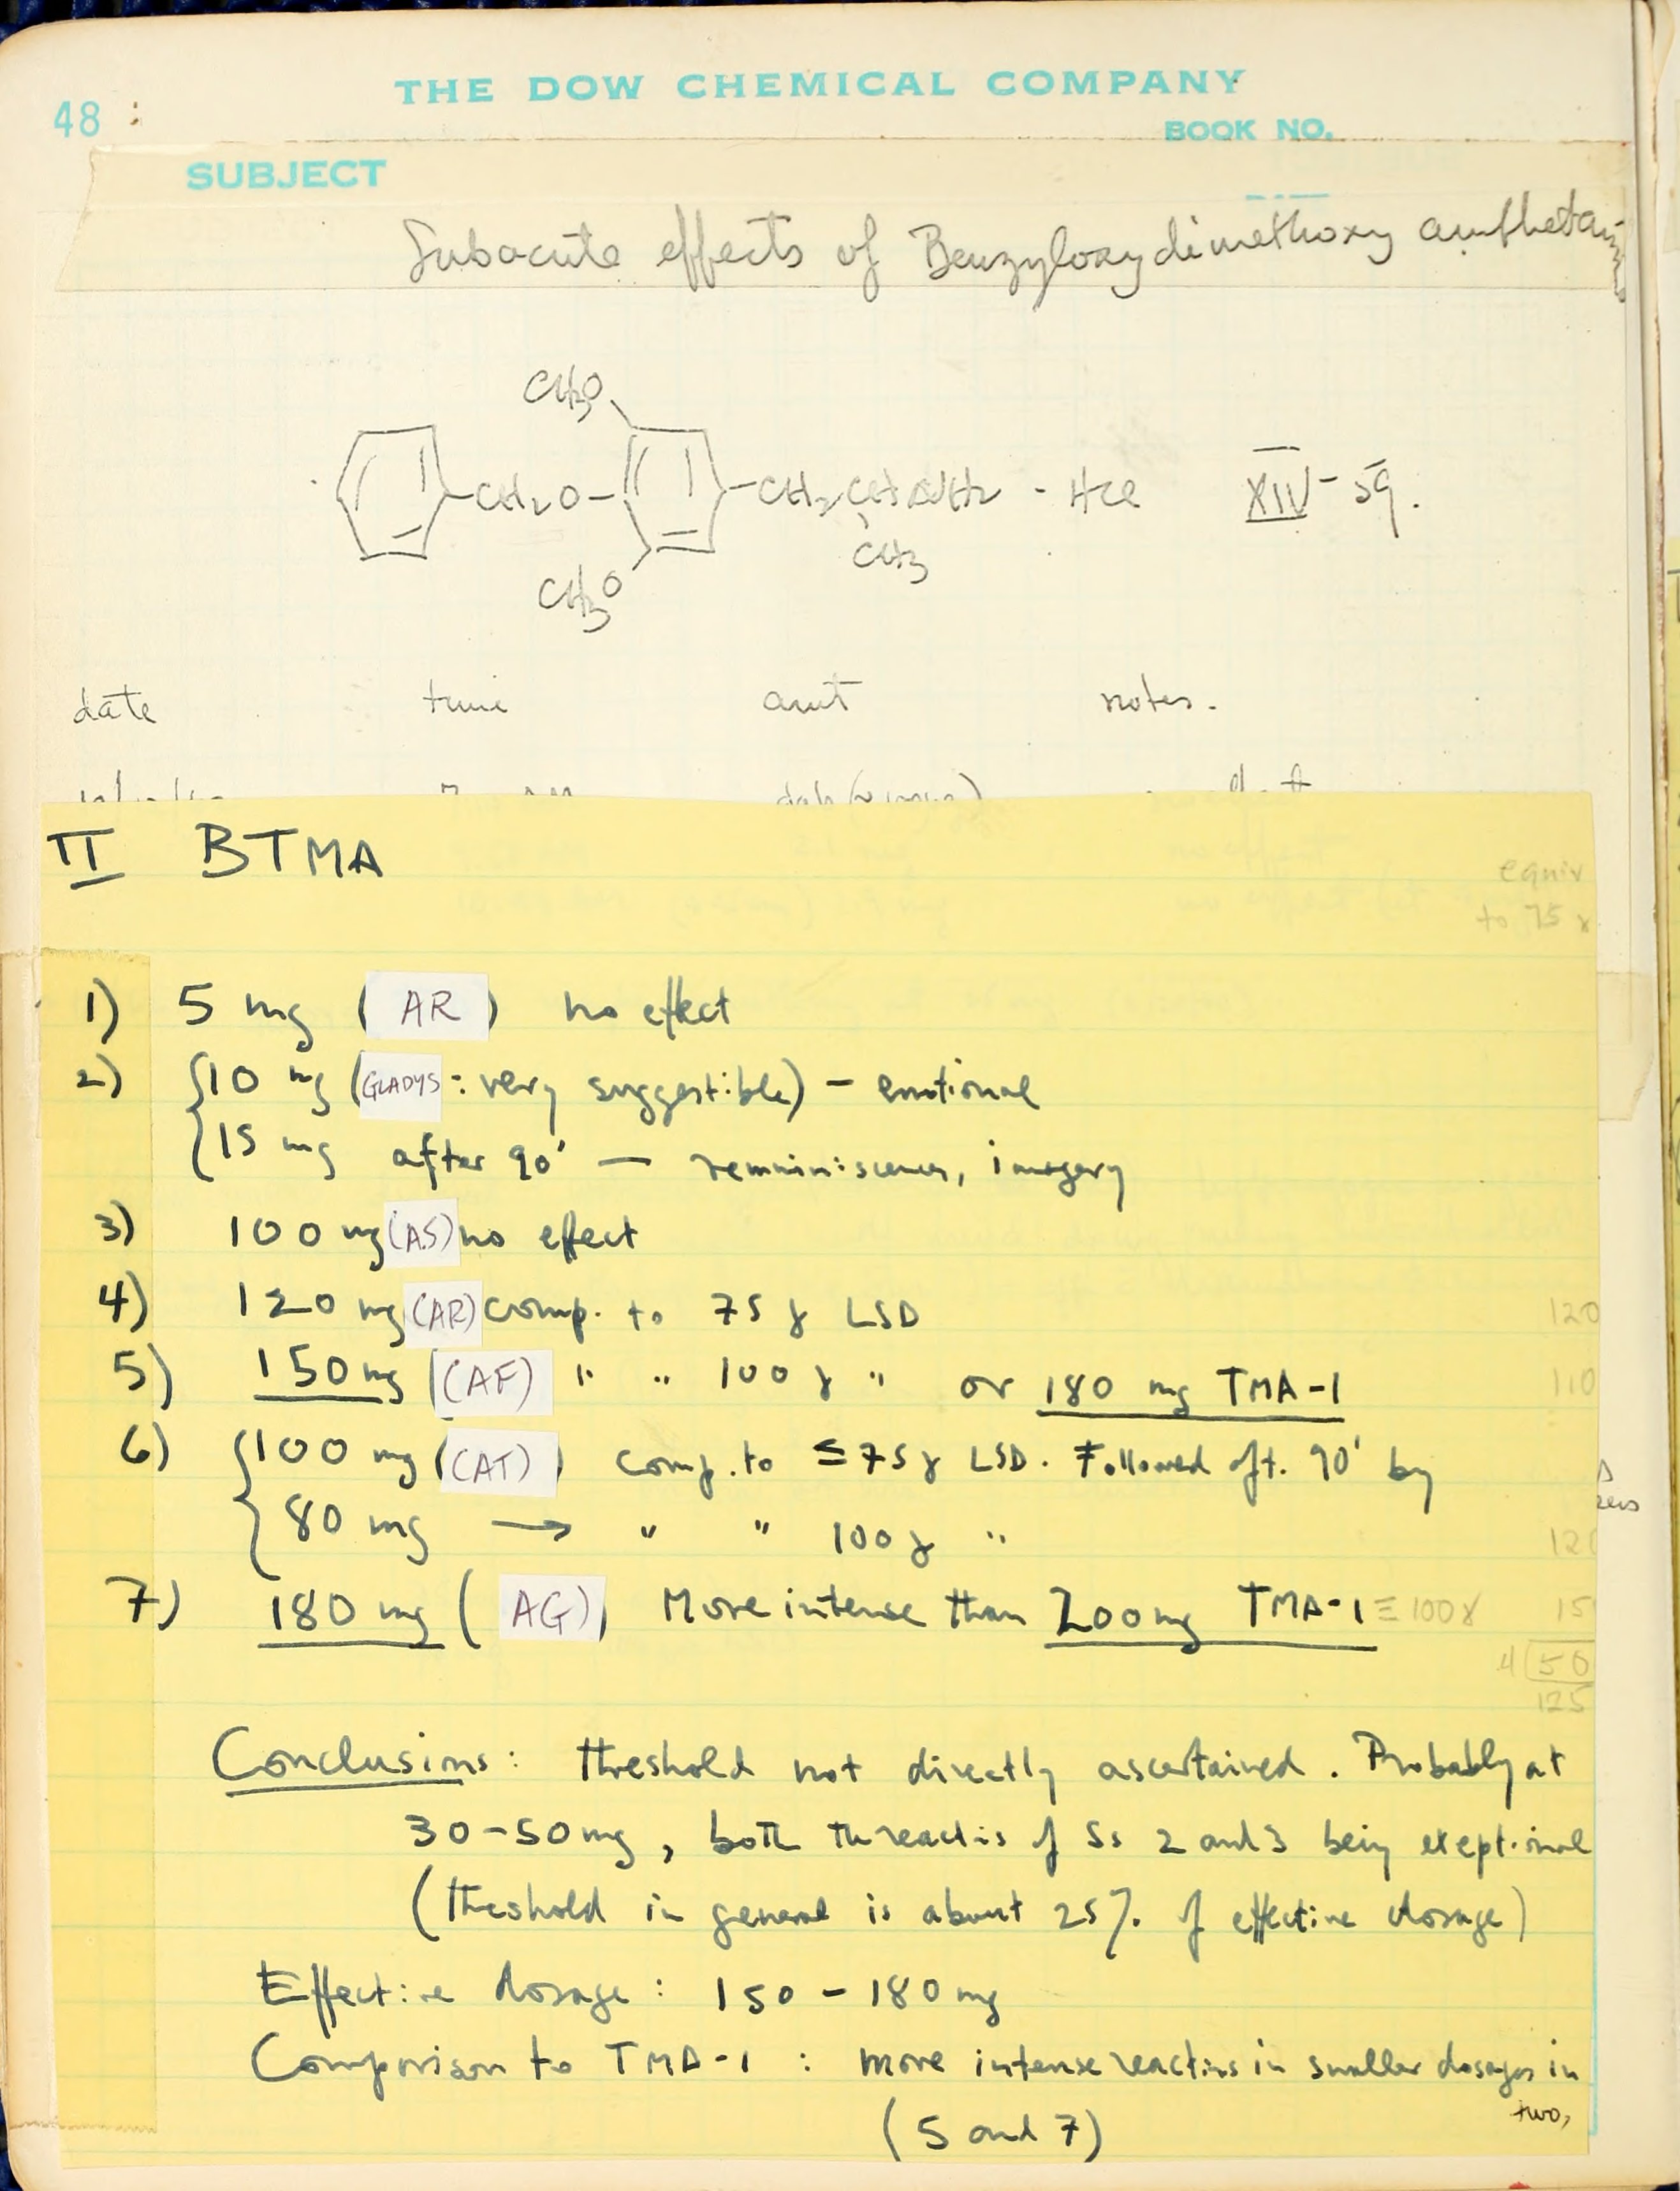 48
THE DOW CHEMICAL COMPANY
BOOK NO.
SUBJECT
Subacute effects of Benzyloxydimethoxy
CH3O
CH2O CH2CHNH2 · HCl XIV-59.
CH3
CH3O
date time amt notes.
II BTMA
equiv
to 75 γ
1) 5 mg (AR) no effect
2) 10 mg (GLADYS: very suggestible) – emotional
15 mg after 90' — imagery
3) 100 mg (AS) no effect
4) 120 mg (AR) comp. to 75 γ LSD 120
5) 150 mg (AF) " " 100 γ " or 180 mg TMA-1 110
6) 100 mg (CAT) comp. to ≤ 75 γ LSD. Followed aft. 90' by
80 mg → " " 100 γ " 120
7) 180 mg (AG) More intense than 200 mg TMA-1 ≡ 100 γ 15
4 50
125
Conclusions: threshold not directly ascertained. Probably at
30-50 mg, both of Ss 2 and 3 being
(threshold in general is about 25% of effective dosage)
Effective dosage: 150 – 180 mg
Comparison to TMA-1: more intense reactions in smaller dosages in
two,
(5 and 7)